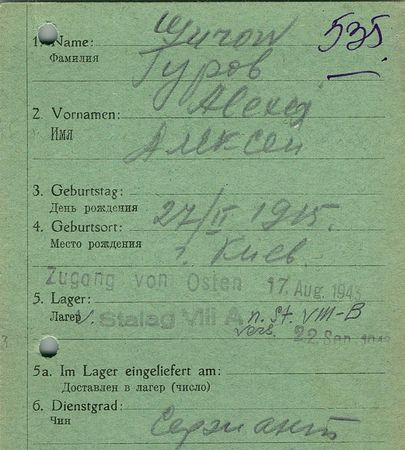 535
1. Name:
Фамилия Гуров
2. Vornamen: Alexej
Имя Алексей
3. Geburtstag:
День рождения 27/II 1915.
4. Geburtsort:
Место рождения г. Киев
Zugang von Osten 17. Aug. 1943
5. Lager:
Лагерь Stalag VIII A n. St. VIII-B
vers. 22 Sep. 1943
5a. Im Lager eingeliefert am:
Доставлен в лагерь (число)
6. Dienstgrad:
Чин Сержант